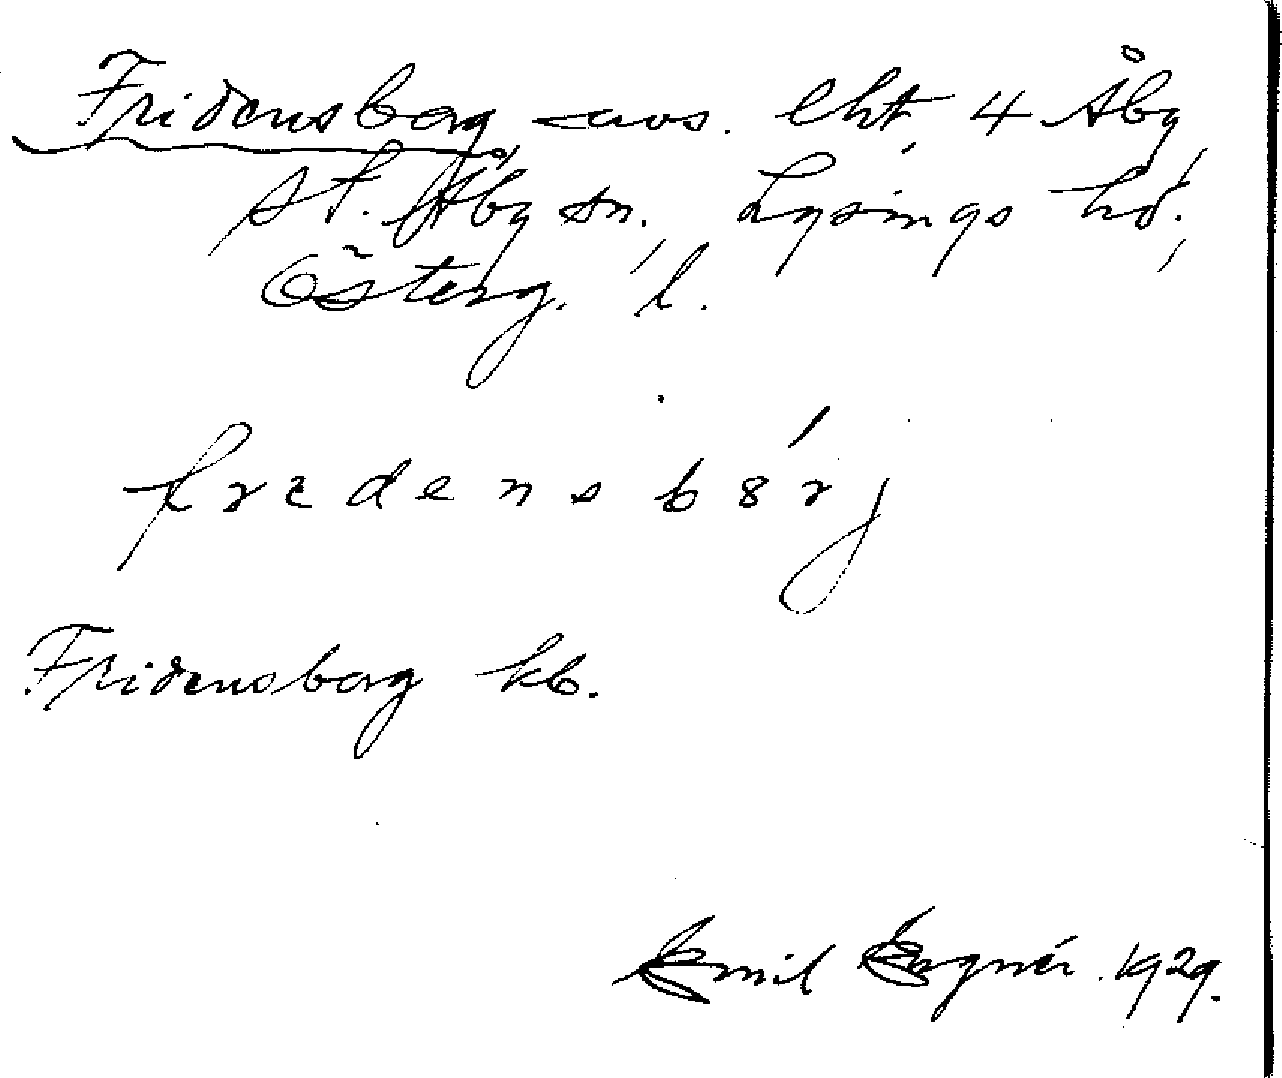 Fridensborg avs. lht 4 Åby
st. Åby sn, Lysings hd,
Österg. l.
fredensbørj
Fridensborg kb.
Emil 1929.